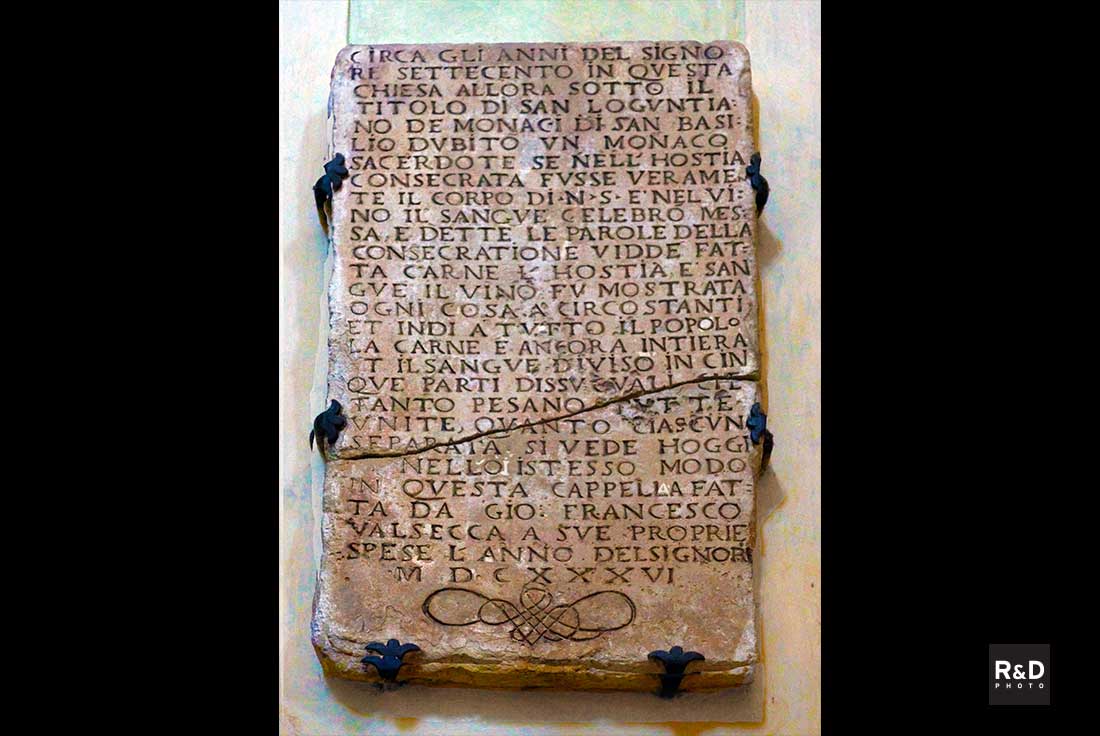 CIRCA GLI ANNI DEL SIGNO
RE SETTECENTO IN QVESTA
CHIESA ALLORA SOTTO IL
TITOLO DI SAN LOGVNTIA:
NO DE MONACI DI SAN BASI:
LIO DVBITÒ VN MONACO
SACERDOTE SE NELL'HOSTIA
CONSECRATA FVSSE VERAME
TE IL CORPO DI·N·S·E NEL VI:
NO IL SANGVE CELEBRÒ MES
SA, E DETTE LE PAROLE DELLA
CONSECRATIONE VIDDE FAT:
TA CARNE L'HOSTIA, E SAN
GVE IL VINO FV MOSTRATA
OGNI COSA A CIRCOSTANTI
ET INDI A TVTTO IL POPOLO
LA CARNE È ANCORA INTIERA
ET IL SANGVE DIVISO IN CIN
QVE PARTI
TANTO PESANO TVTTE
VNITE, QVANTO CIASCVN
SEPARATA SI VEDE HOGGI
NELLO ISTESSO MODO
IN QVESTA CAPPELLA FAT:
TA DA GIO: FRANCESCO
VALSECCA A SVE PROPRIE
SPESE L'ANNO DEL SIGNOR
M D C XXXVI
R&D
PHOTO